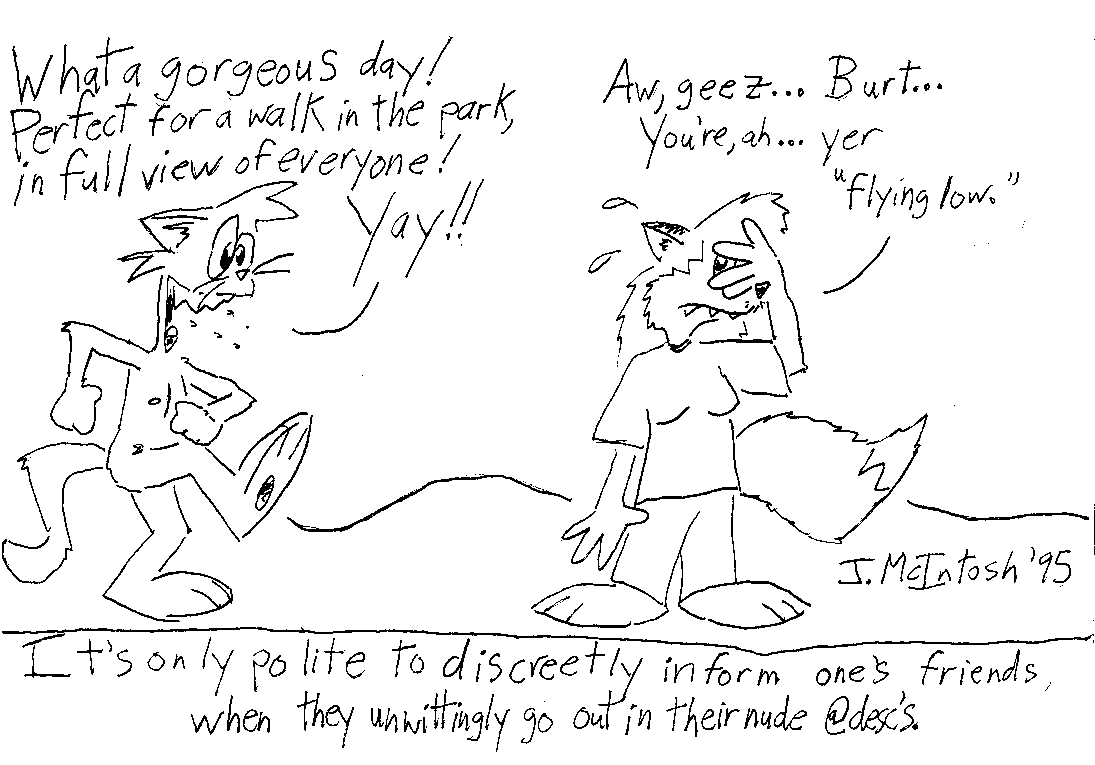 What a gorgeous day!
Perfect for a walk in the park,
in full view of everyone!
Yay!!
Aw, geez... Burt...
You're, ah... yer
"flying low."
J. McIntosh '95
It's only polite to discreetly inform one's friends,
when they unwittingly go out in their nude @desc's.